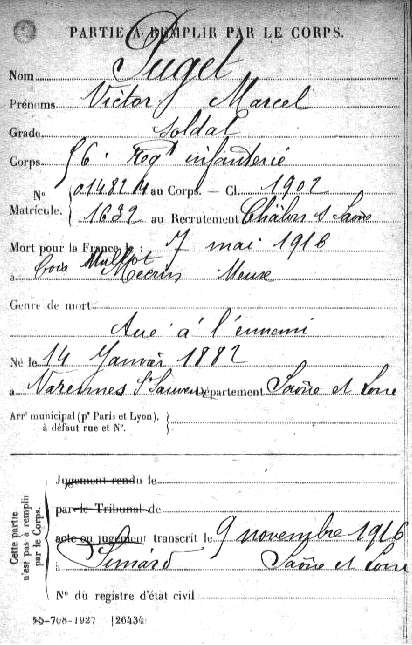 PARTIE A REMPLIR PAR LE CORPS.
Nom Puget
Prénoms Victor Marcel
Grade Soldat
Corps 56e Regt infanterie
N° 01482 au Corps. — Cl. 1902
Matricule. 1632 au Recrutement Châlon s Saône
Mort pour la France le : 7 mai 1916
à Croix Mecrin Meuse
Genre de mort
Tué à l'ennemi
Né le 14 Janvier 1882
à Varennes St Sauveur Département Saône et Loire
Arrt municipal (pr Paris et Lyon),
à défaut rue et N°.
Cette partie
n'est pas à remplir
par le Corps.
Jugement rendu le
par le Tribunal de
acte ou jugement transcrit le 9 novembre 1916
à Simard Saône et Loire
N° du registre d'état civil
708-1927 [26434]